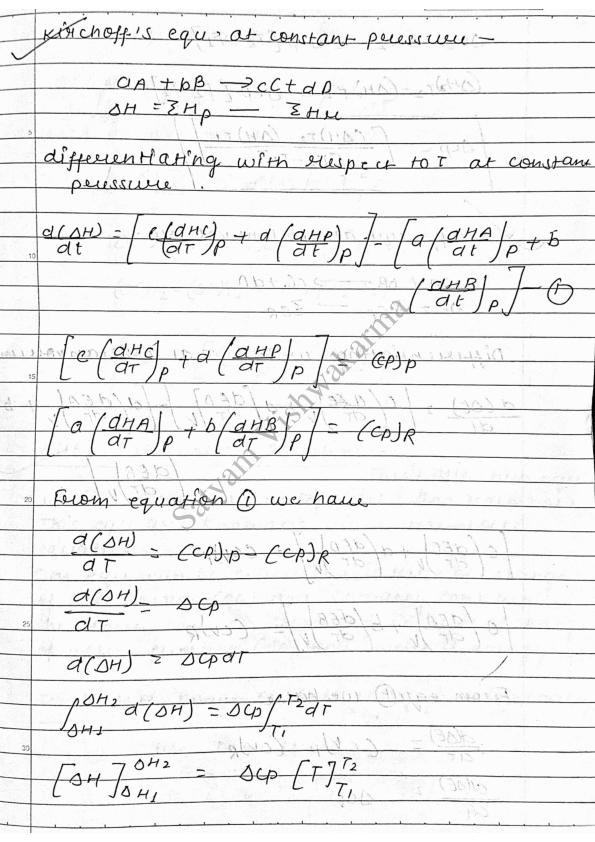 Kirchoff's equ. at constant pressure –
aA + bB → cC + dD
ΔH = ΣHp — ΣHr
differentiating with respect to T at constant
pressure.
d(ΔH)/dt = [c(dHC/dT)P + d(dHD/dt)P] – [a(dHA/dt)P + b
(dHB/dt)P] – ①
[c(dHC/dT)P + d(dHD/dT)P] = (CP)P
[a(dHA/dT)P + b(dHB/dT)P] = (CP)R
From equation ① we have
d(ΔH)/dT = (CP)P – (CP)R
d(ΔH)/dT = ΔCp
d(ΔH) = ΔCpdT
∫ΔH1^ΔH2 d(ΔH) = ΔCp ∫T1^T2 dT
[ΔH]ΔH1^ΔH2 = ΔCp [T]T1^T2
Satyam Vishwakarma
5
10
15
20
25
30